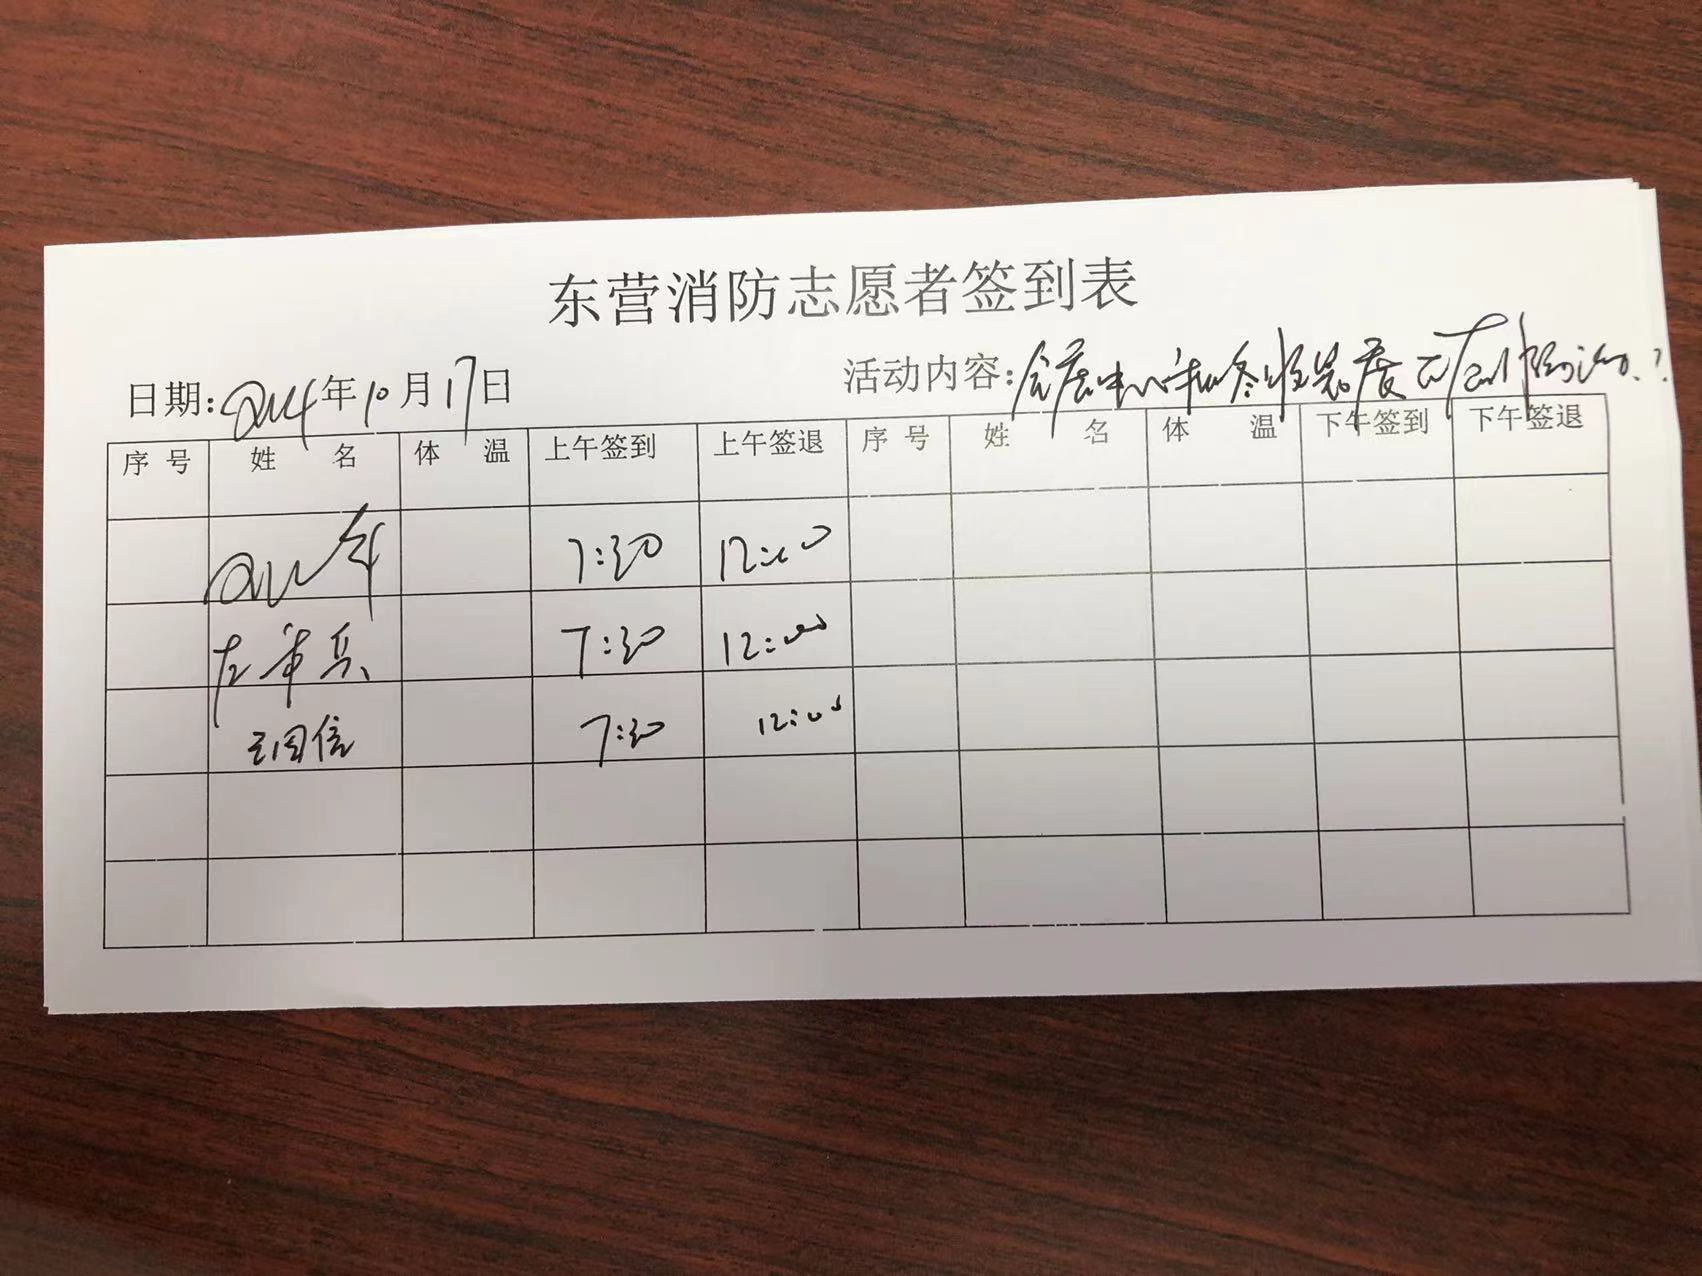 东营消防志愿者签到表
日期:2024年10月17日 活动内容:
序号 姓名 体温 上午签到 上午签退 序号 姓名 体温 下午签到 下午签退
7:30 12:00
左军兵 7:30 12:00
王国信 7:30 12:00